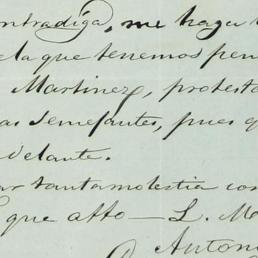 ntradiga, me haga
ela que tenemos pen
Martinez, protesta
as semejantes, pues q
delante.
ar tanta molestia con
que atto — L. M
Antoni